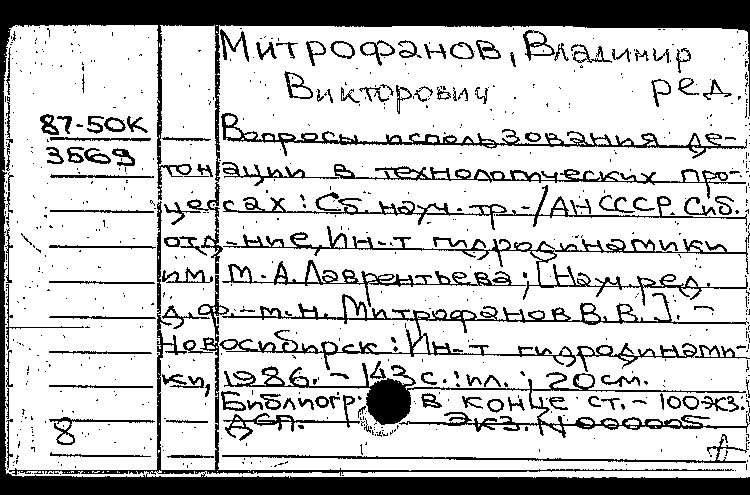 Митрофанов, Владимир
Викторович ред.
87-50К
Вопросы использования де-
3569
тонации в технологических про-
цессах : Сб. науч. тр. - / АН СССР. Сиб.
отд-ние, Ин-т гидродинамики
им. М.А. Лаврентьева ; [Науч. ред.
д.ф.-м.н. Митрофанов В.В.]. -
Новосибирск : Ин-т гидродинами-
ки, 1986. - 143 с. : ил. ; 20 см.
Библиогр. в конце ст. - 100 экз.
8
Деп. Экз. N 000005